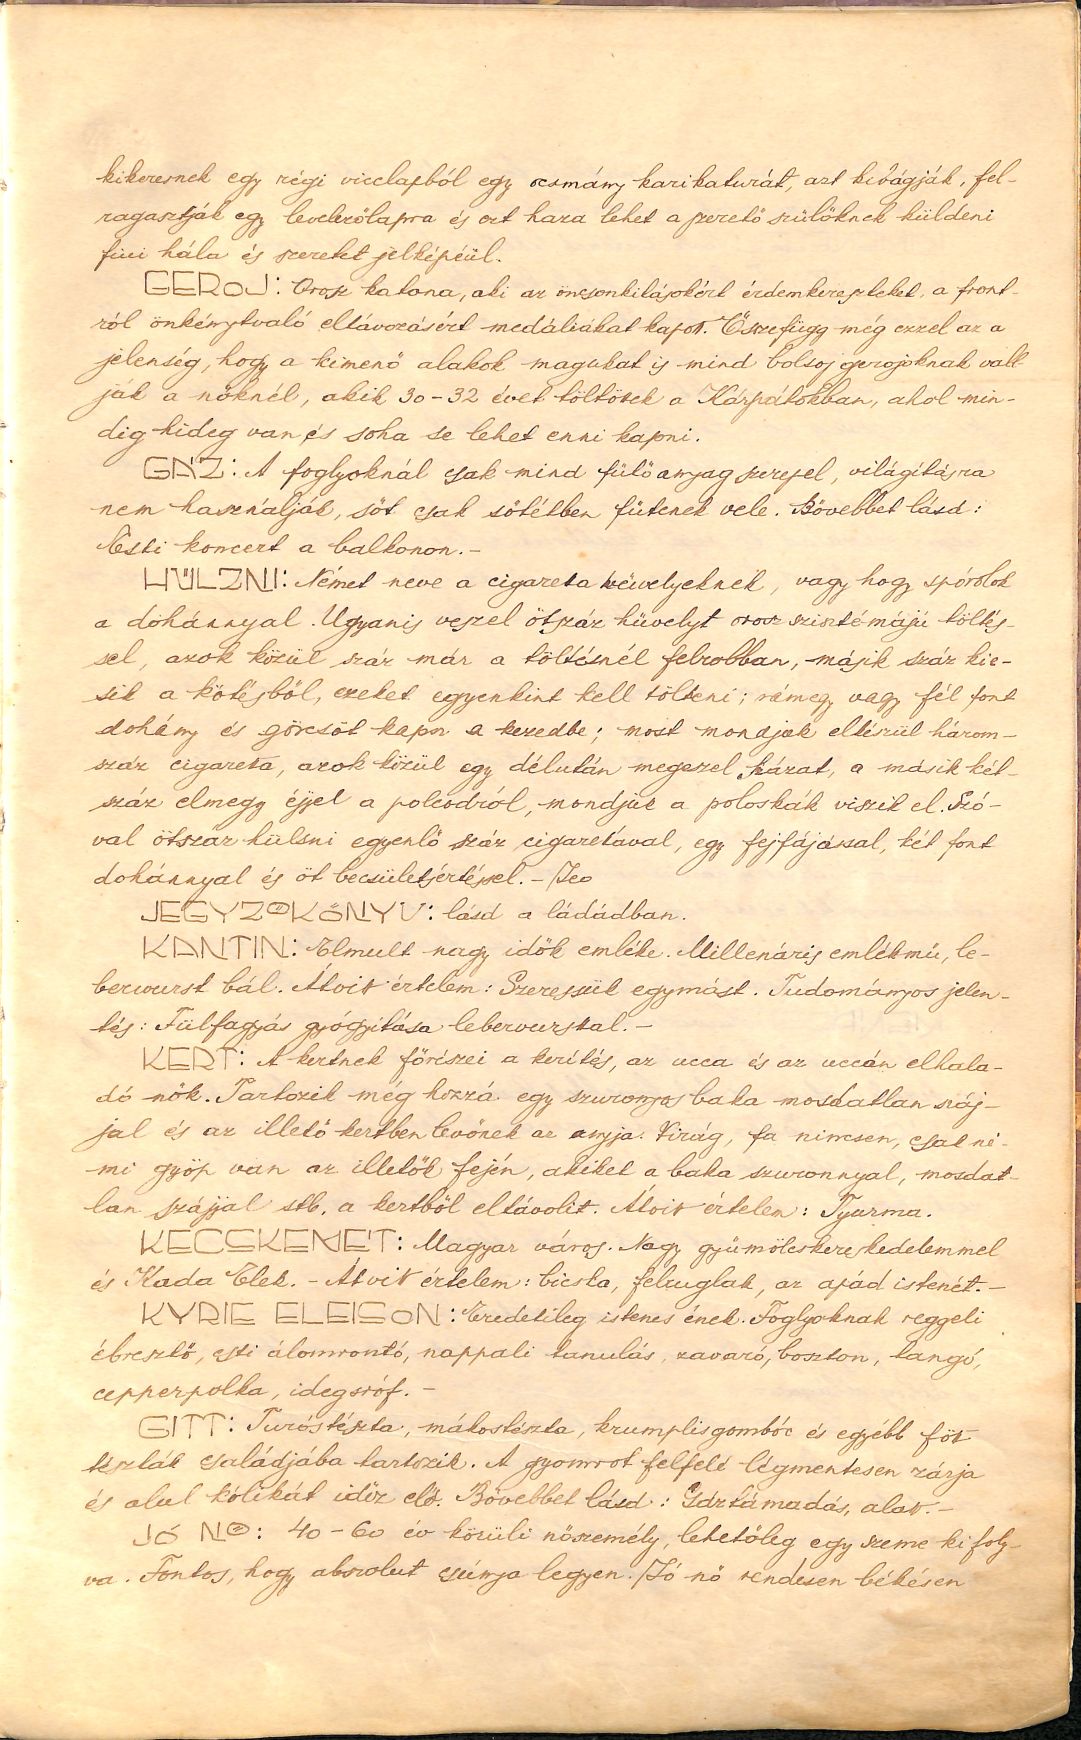 kikeresnek egy régi vicclapból egy ocsmány karikaturát, azt kivágják, fel-
ragasztják egy levelezőlapra és ezt haza lehet a szerető szülőknek küldeni
fiui hála és szeretet jelképéül.
GEROJ: Orosz katona, aki az öncsonkitásokért érdemkereszteket, a front-
ról önkénytvaló eltávozásért medáliákat kapott. Összefügg még ezzel az a
jelenség, hogy a kimenő alakok magukat is mind bolsoj gerojoknak vall-
ják a nőknél, akik 30-32 évet töltöttek a Kárpátokban, ahol min-
dig hideg van és soha se lehet enni kapni.
GÁZ: A foglyoknál csak mind fütőanyag szerepel, világításra
nem használják, sőt csak sötétben fütenek vele. Bővebbet lásd:
Esti koncert a balkonon.-
HÜLZNI: Német neve a cigareta hüvelyeknek, vagy hogy spórolok
a dohánnyal. Ugyanis veszel ötszáz hüvelyt orosz szisztémáju töltés-
sel, azok közül száz már a töltésnél felrobban, másik száz kie-
sik a kötésből, ezeket egyenkint kell tölteni; rámegy vagy fél font
dohány és görcsöt kapsz a kezedbe; most mondjuk elkészül három-
száz cigareta, azok közül egy délután megeszel százat, a másik két-
száz elmegy éjjel a polcodról, mondjuk a poloskák viszik el. Szó-
val ötszáz hülsni egyenlő száz cigaretával, egy fejfájással, két font
dohánnyal és öt becsületsértéssel. - Jeo
JEGYZŐKÖNYV: lásd a ládádban.
KANTIN: Elmult nagy idők emléke. Millenáris emlékmű, le-
berwurst bál. Átvitt értelem: Szeressük egymást. Tudományos jelen-
tés: Fülfagyás gyógyitása leberwursttal.-
KERT: A kertnek főrészei a kerítés, az ucca és az uccán elhala-
dó nők. Tartozik még hozzá egy szuronyos baka mosdatlan száj-
jal és az illető kertben levőnek az anyja. Virág, fa nincsen, csak né-
mi gyöp van az illetők fején, akiket a baka szuronnyal, mosdat-
lan szájjal stb. a kertből eltávolít. Átvitt értelem: Tyurma.
KECSKEMÉT: Magyar város. Nagy gyümölcskereskedelemmel
és Kada Elek. - Átvitt értelem: bicska, felruglak, az apád istenét.-
KYRIE ELEISON: Eredetileg istenes ének. Foglyoknak reggeli
ébresztő, esti álomrontó, nappali tanulás, zavaró, boszton, tangó,
cepperpolka, idegsróf.-
GITT: Turóstészta, mákostészta, krumplisgombóc és egyébb főtt
tészták családjába tartozik. A gyomrot felfelé légmentesen zárja
és alul kólikát idéz elő. Bővebbet lásd: Gáztámadás, alatt.-
JÓ NŐ: 40-60 év közüli nőszemély, lehetőleg egy szeme kifoly-
va. Fontos, hogy abszolut csúnya legyen. Jó nő rendesen békésen